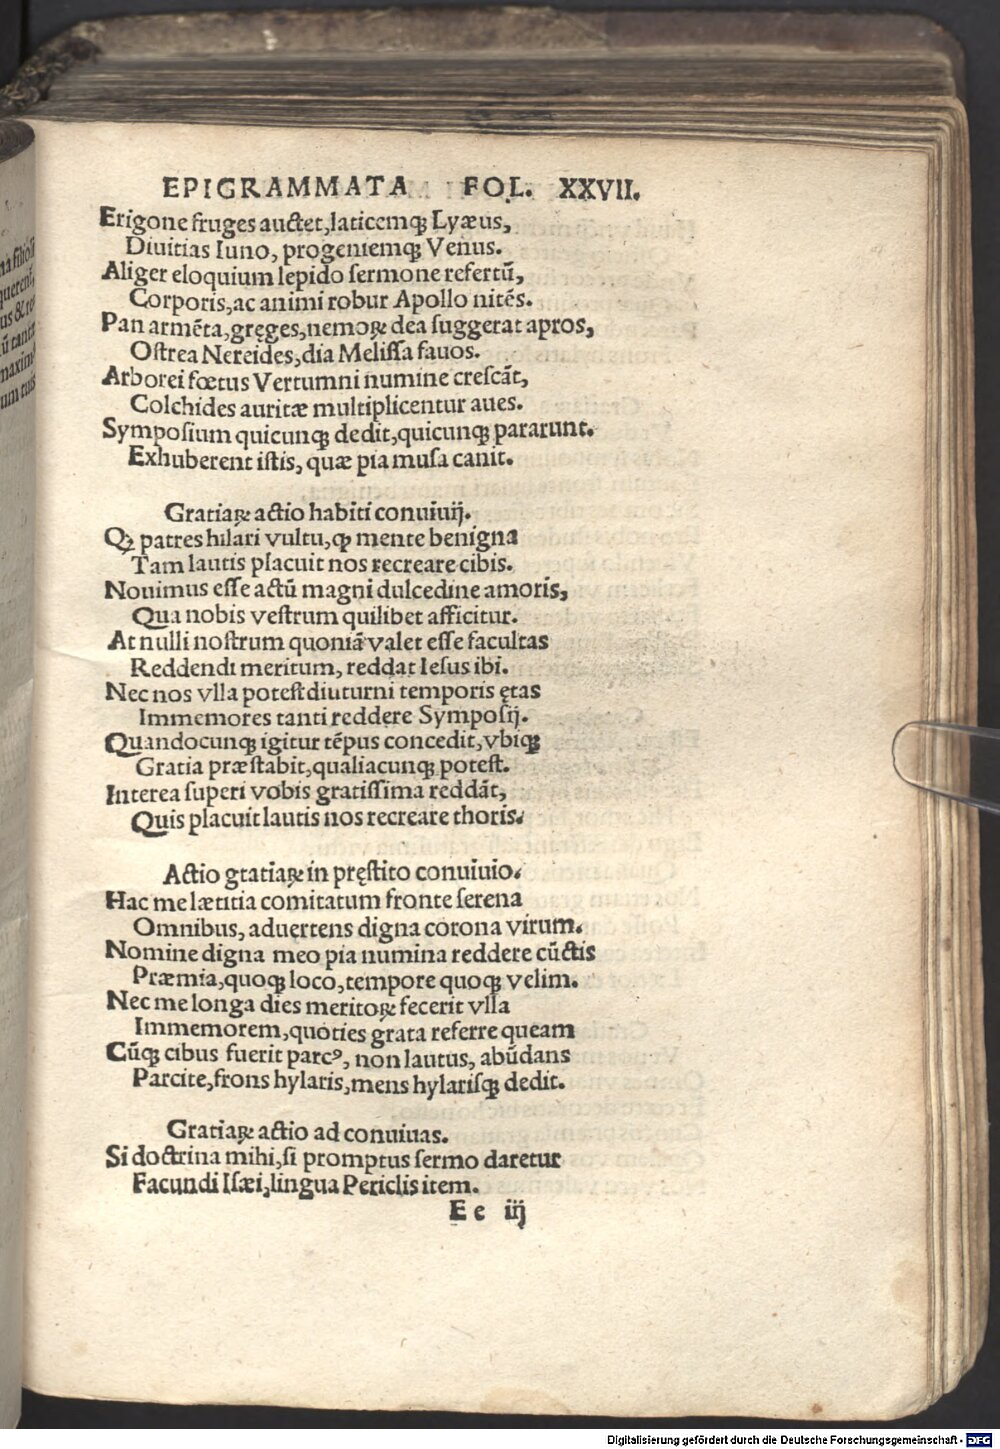 EPIGRAMMATA FOL. XXVII.
Erigone fruges auctet, laticemqꝫ Lyæus,
Diuitias Iuno, progeniemqꝫ Venus.
Aliger eloquium lepido ſermone refertū,
Corporis, ac animi robur Apollo nitēs.
Pan armēta, gręges, nemoꝝ dea ſuggerat apros,
Oſtrea Nereides, dia Meliſſa fauos.
Arborei fœtus Vertumni numine creſcāt,
Colchides auritæ multiplicentur aues.
Sympoſium quicunqꝫ dedit, quicunqꝫ pararunt.
Exhuberent iſtis, quæ pia muſa canit.
Gratiaꝝ actio habiti conuiuij.
Qꝫ patres hilari vultu, ꝙ mente benigna
Tam lautis placuit nos recreare cibis.
Nouimus eſſe actū magni dulcedine amoris,
Qua nobis veſtrum quilibet afficitur.
At nulli noſtrum quoniā valet eſſe facultas
Reddendi meritum, reddat Ieſus ibi.
Nec nos vlla poteſt diuturni temporis ętas
Immemores tanti reddere Sympoſij.
Quandocunqꝫ igitur tēpus concedit, vbiqꝫ
Gratia præſtabit, qualiacunqꝫ poteſt.
Interea ſuperi vobis gratiſſima reddāt,
Quis placuit lautis nos recreare thoris.
Actio gratiaꝝ in pręſtito conuiuio.
Hac me lætitia comitatum fronte ſerena
Omnibus, aduertens digna corona virum.
Nomine digna meo pia numina reddere cūctis
Præmia, quoqꝫ loco, tempore quoqꝫ velim.
Nec me longa dies meritoꝝ fecerit vlla
Immemorem, quoties grata referre queam
Cūqꝫ cibus fuerit parcꝰ, non lautus, abūdans
Parcite, frons hylaris, mens hylariſqꝫ dedit.
Gratiaꝝ actio ad conuiuas.
Si doctrina mihi, ſi promptus ſermo daretur
Facundi Iſæi, lingua Periclis item.
E e iij
na filioli
querent,
us & re
ū tanta
maxime
um tuis
Digitalisierung gefördert durch die Deutsche Forschungsgemeinschaft - DFG